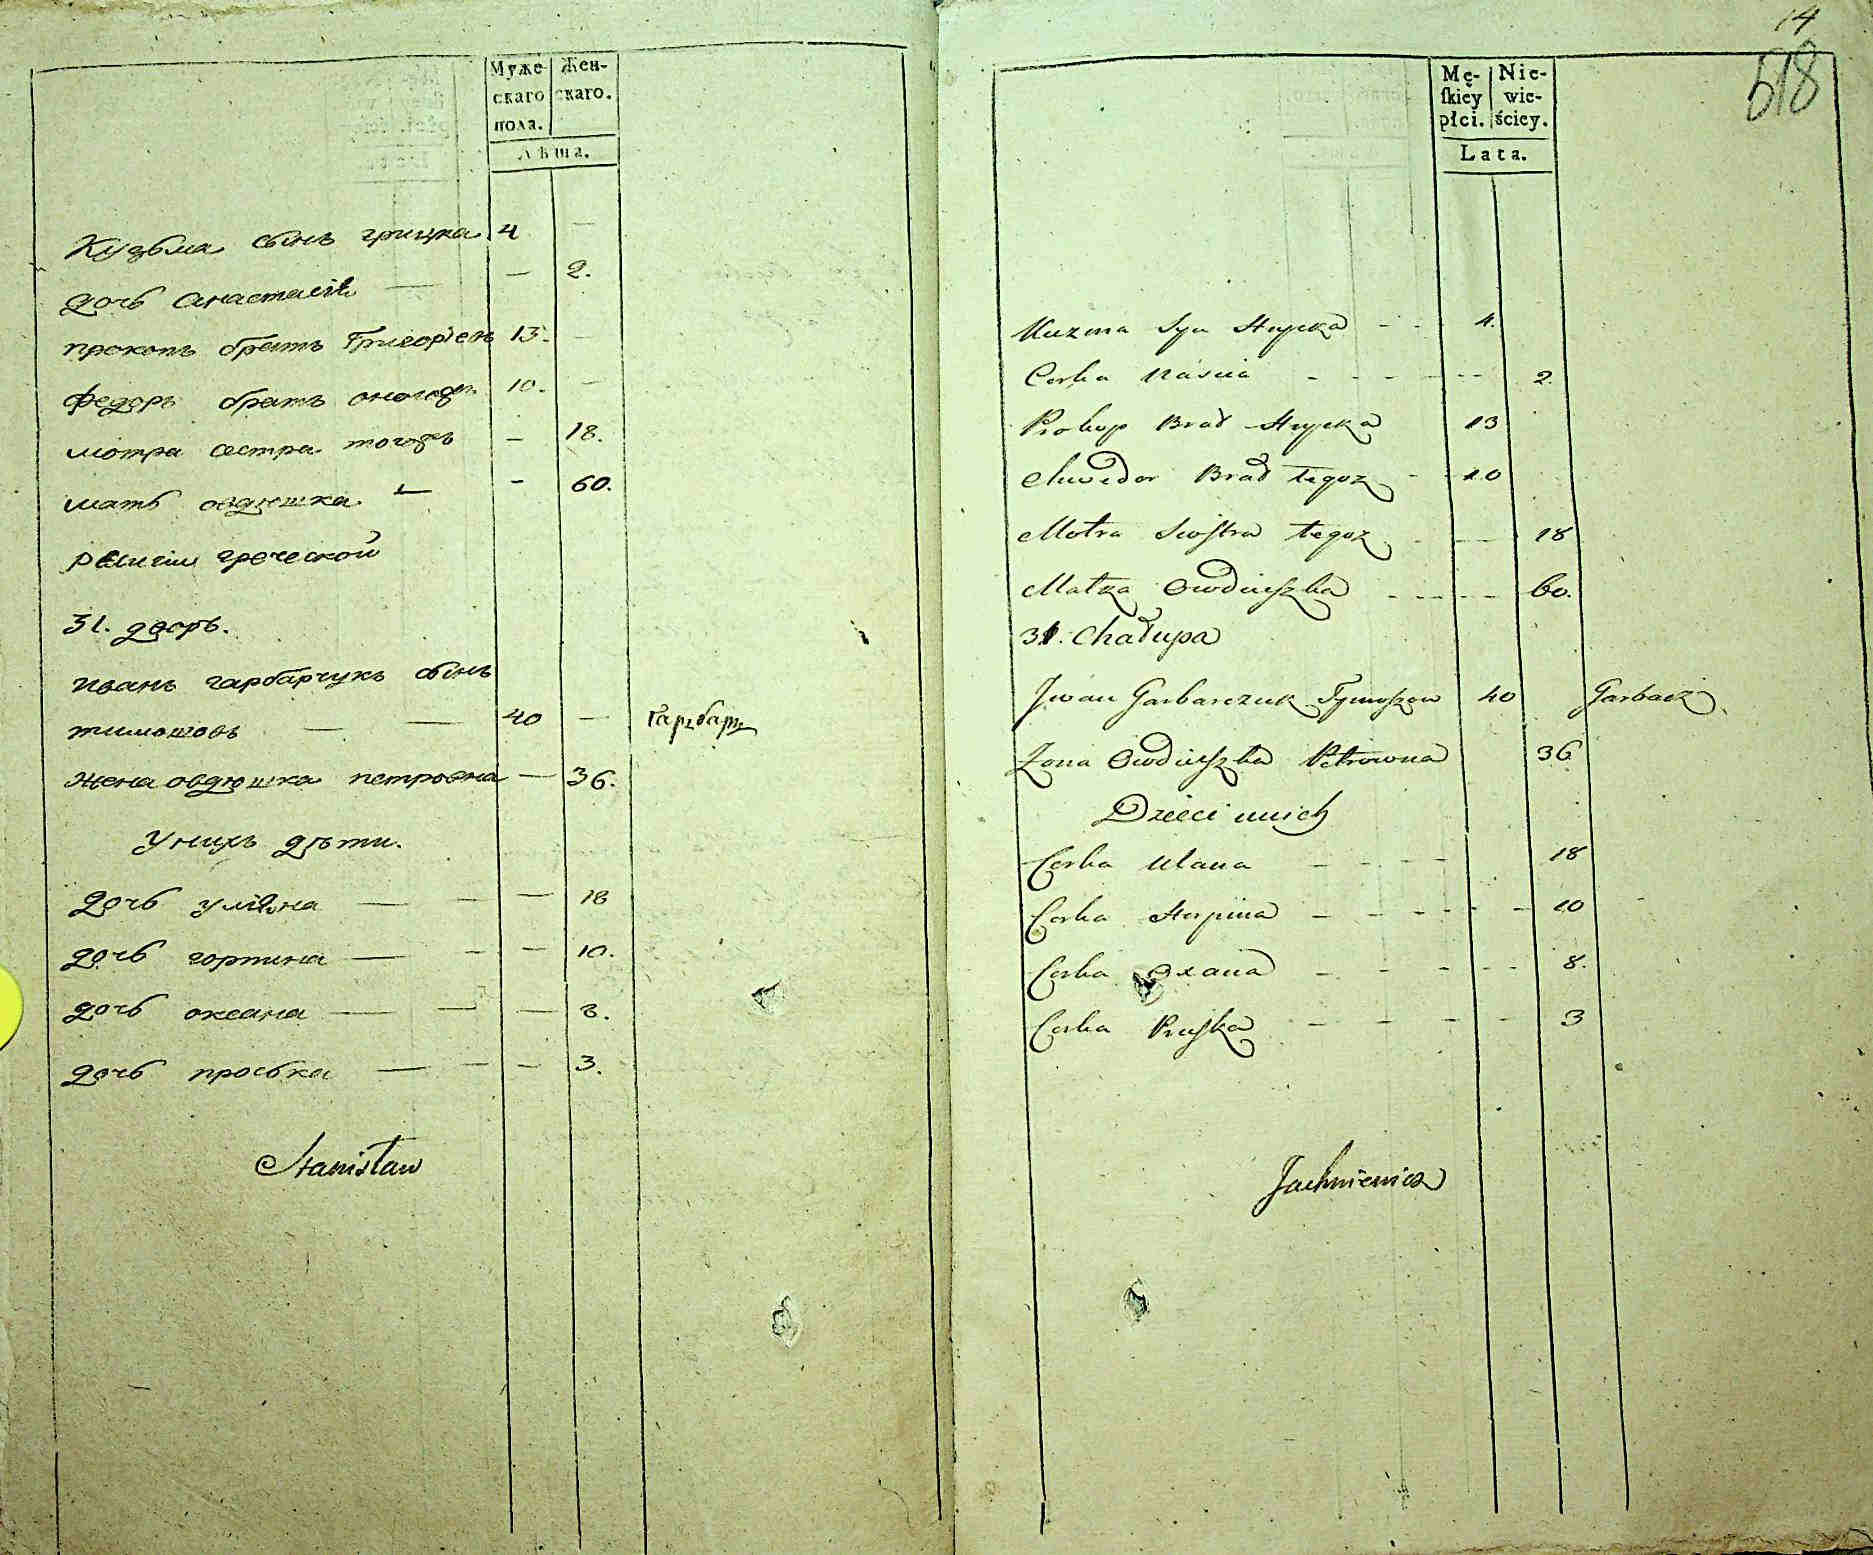 Муже- Жен-
скаго скаго.
пола.
Лѣта.
Кузьма сынъ грицка 4 —
дочь анастасія — — 2.
прокопъ братъ Григоріевъ 13. —
федоръ братъ оногожъ 10. —
мотра сестра тогожъ — 18.
мать овдюшка — — 60.
религіи греческой
31. дворъ.
иванъ гарбарчукъ сынъ
тимошовъ — — 40 — гарбарь
жена овдюшка петровна — 36.
У нихъ дѣти.
дочь уліяна — — — 18
дочь горпина — — — 10.
дочь оксана — — — 8.
дочь проська — — — 3.
Stanisław
14
518
Mę- Nie-
ſkiey wie-
płci. ściey.
Lata.
Kuzma Syn Hrycka - - 4.
Corka Naścia - - - - - 2
Prokop Brat Hrycka 13
Chwedor Brat tegoz - - 10
Motra Siostra tegoz - - 18
Matka Owdiuszka - - - - - 60.
31. Chałupa
Jwan Garbarczuk Tymoszow 40 Garbarz
Zona Owdiuszka Petrowna 36
Dzieci unich
Corka Ulana - - - - 18
Corka Horpina - - - - - - 10
Corka Oxana - - - - - 8.
Corka Pruska - - - - - 3
Jachniewicz